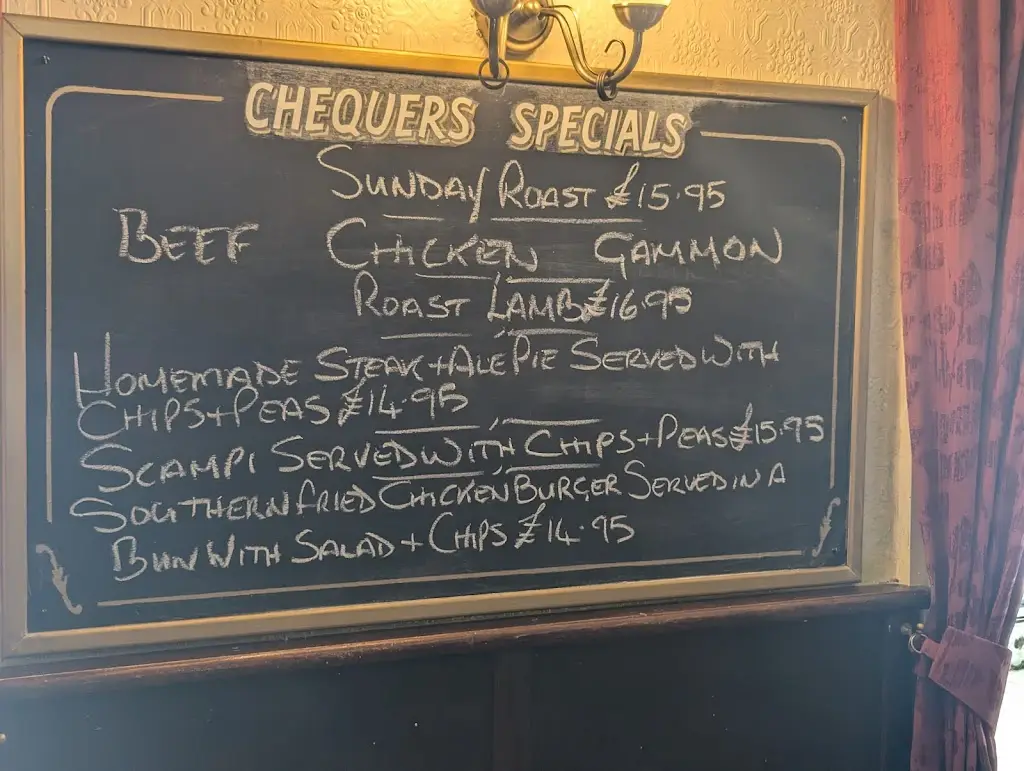 CHEQUERS SPECIALS
SUNDAY ROAST £15.95
BEEF CHICKEN GAMMON
ROAST LAMB £16.95
HOMEMADE STEAK + ALE PIE SERVED WITH
CHIPS + PEAS £14.95
SCAMPI SERVED WITH CHIPS + PEAS £15.95
SOUTHERN FRIED CHICKEN BURGER SERVED IN A
BUN WITH SALAD + CHIPS £14.95